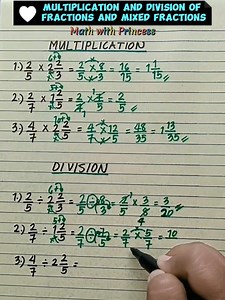 MULTIPLICATION AND DIVISION OF
FRACTIONS AND MIXED FRACTIONS
Math with Princess
MULTIPLICATION
1.) 2/5 × 2 2/3 = 2/5 × 8/3 = 16/15 = 1 1/15
2.) 2/7 × 1 2/5 = 2/7 × 7/5 = 2/5
3.) 4/7 × 2 2/5 = 4/7 × 12/5 = 48/35 = 1 13/35
DIVISION
1.) 2/5 ÷ 2 2/3 = 2/5 ÷ 8/3 = 2/5 × 3/8 = 3/20
2.) 2/7 ÷ 1 2/5 = 2/7 ÷ 7/5 = 2/7 × 5/7 = 10
3.) 4/7 ÷ 2 2/5 =